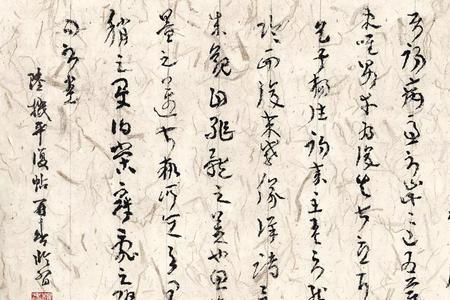 初病慮不止此此已為慶
使唯男幸為復失前憂耳
吳子楊往初來主吾不能
臨西復來威儀詳跱
成觀自軀體之美也思
量之邁前執所恒有宜
稱之夏伯榮寇亂之際
問不悉
陸機平復帖